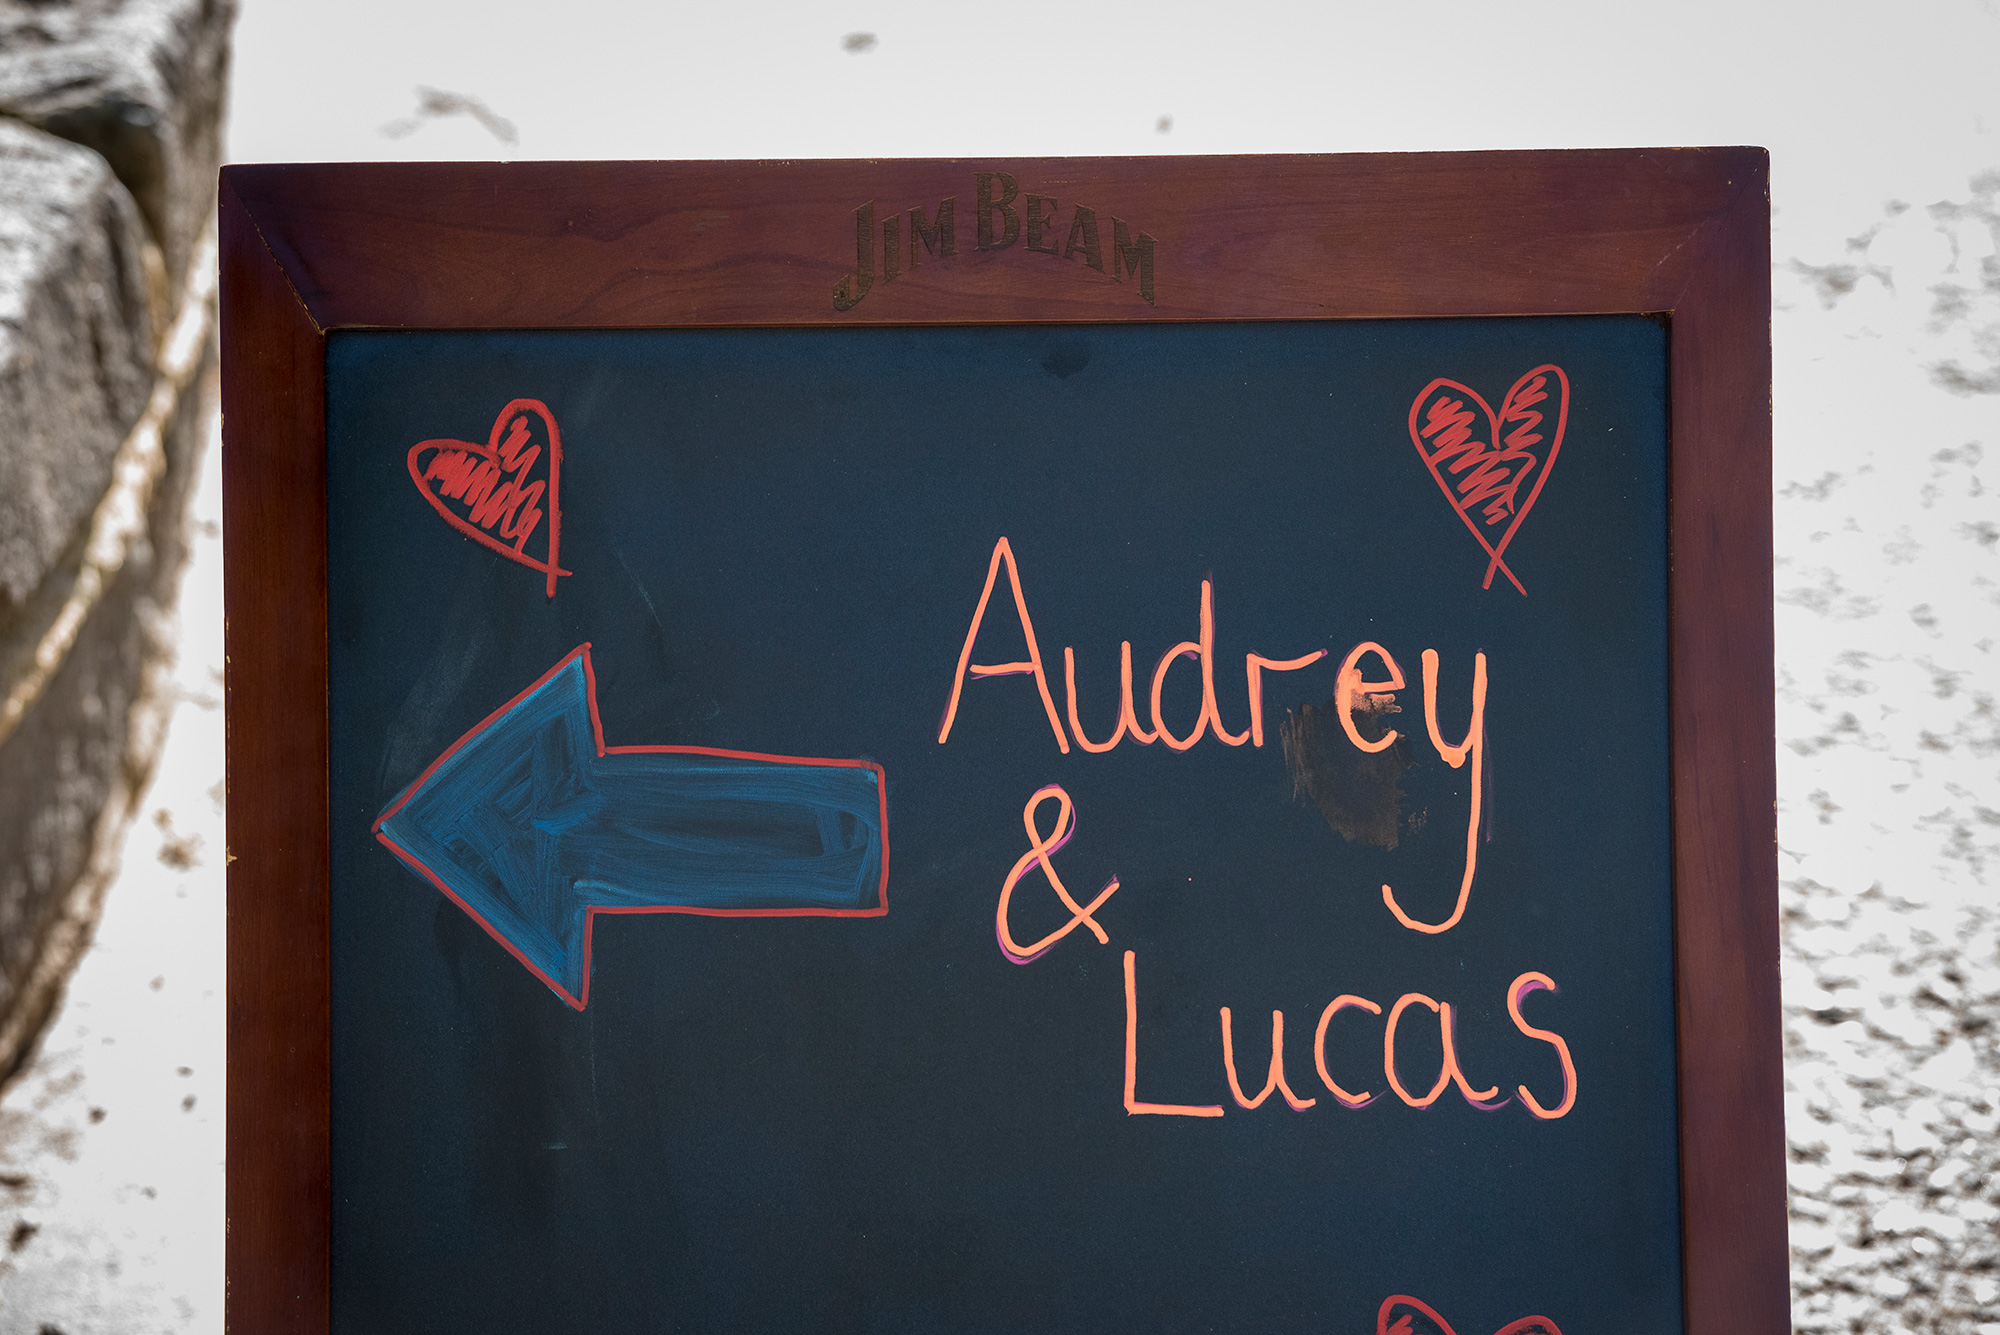 JIM BEAM
Audrey
&
Lucas